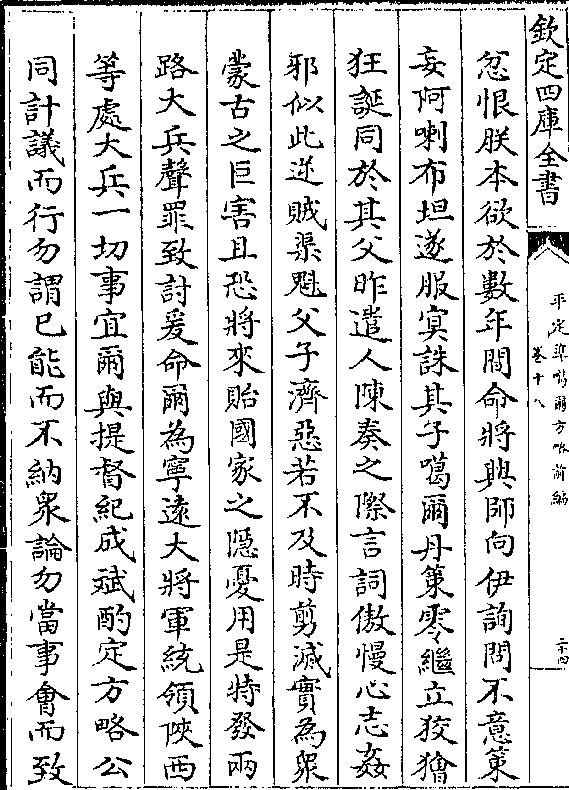 欽定四庫全書
平定準噶爾方略前編
卷十八
二十四
忿恨朕本欲於數年間命將興師向伊詢問不意策
妄阿喇布坦遂服冥誅其子噶爾丹策零繼立狡獪
狂誕同於其父昨遣人陳奏之際言詞傲慢心志姦
邪似此逆賊渠魁父子濟惡若不及時剪滅實為衆
蒙古之巨害且恐將來貽國家之隱憂用是特發兩
路大兵聲罪致討爰命爾為寧遠大將軍統領陜西
等處大兵一切事宜爾與提督紀成斌酌定方略公
同計議而行勿謂已能而不納衆論勿當事會而致